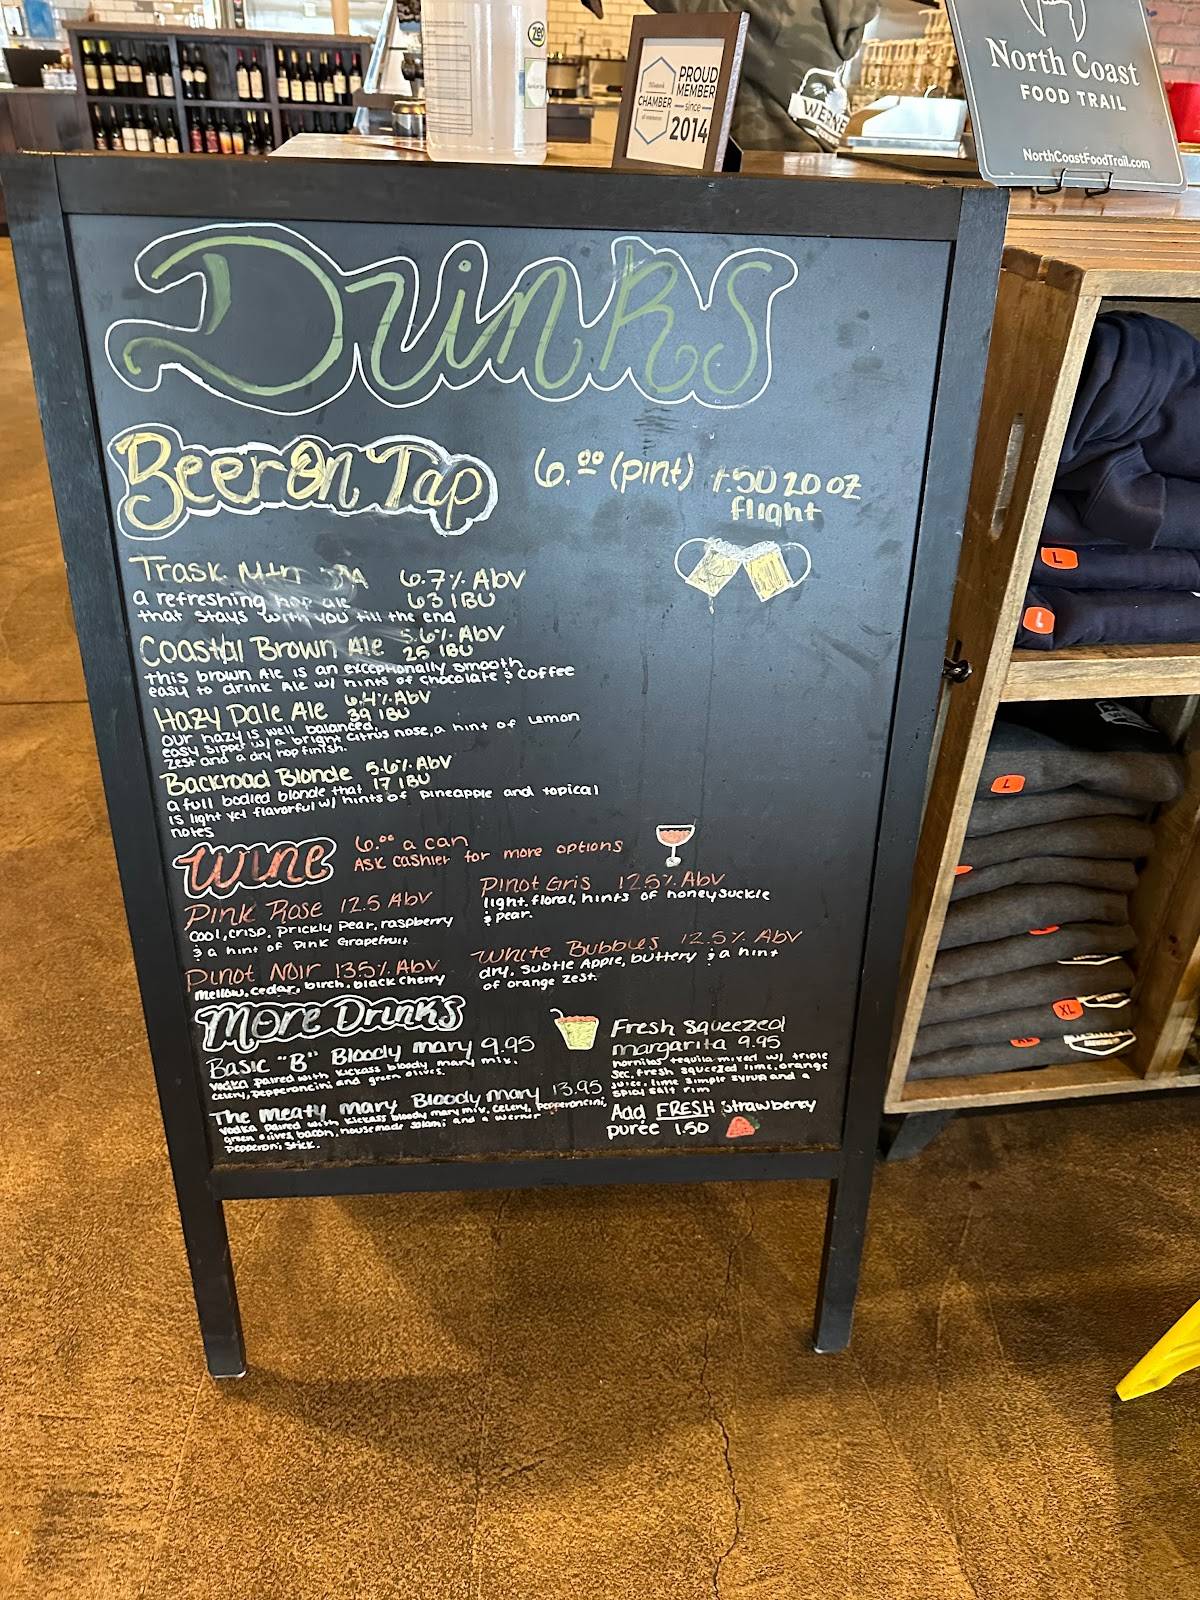 zep
PROUD
MEMBER
since
2014
Tillamook
CHAMBER
of commerce
WERNE
North Coast
FOOD TRAIL
NorthCoastFoodTrail.com
Drinks
Beer On Tap
6.00 (pint) 7.50 20 oz
flight
Trask Mtn 6.7% AbV
a refreshing hop ale 63 IBU
that stays with you till the end
Coastal Brown Ale 5.6% AbV
25 IBU
this brown Ale is an exceptionally smooth
easy to drink Ale w/ hints of chocolate & coffee
Hazy Dale Ale 6.4% AbV
39 IBU
our hazy is well balanced,
easy sipper w/ a bright citrus nose, a hint of Lemon
zest and a dry hop finish.
Backroad Blonde 5.6% AbV
a full bodied blonde that 17 IBU
is light yet flavorful w/ hints of pineapple and topical
notes
Wine
6.00 a can
ASK cashier for more options
Pink Rose 12.5 AbV
cool, crisp, prickly pear, raspberry
& a hint of Pink Grapefruit
Pinot Gris 12.5% AbV
light, floral, hints of honeysuckle
& pear.
Pinot Noir 13.5% AbV
mellow, cedar, birch, black cherry
White Bubbles 12.5% AbV
dry, subtle Apple, buttery & a hint
of orange zest.
More Drinks
Basic "B" Bloody mary 9.95
vodka paired with Kickass bloody mary mix,
celery, pepperoncini and green olives.
The Meaty Mary Bloody mary 13.95
vodka paired with Kickass bloody mary mix, celery, pepperoncini,
green olives, bacon, housemade salami and a werner
pepperoni stick.
Fresh squeezed
margarita 9.95
hornitos tequila mixed w/ triple
sec, fresh squeezed lime, orange
juice, lime simple syrup and a
spicy salt rim
Add FRESH strawberry
purée 1.50
L
L
L
XL